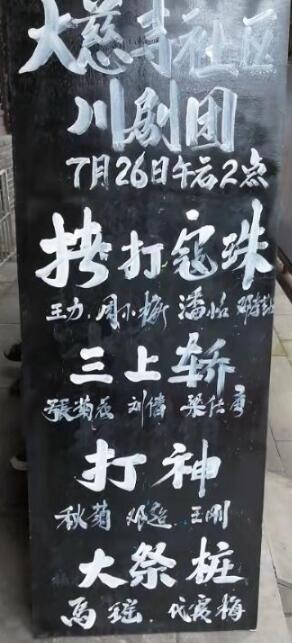 大慈寺社区
川剧团
7月26日午后2点
拷打寇珠
王力.周小梅 潘怡
三上轿
張菊花 刘倩
打神
秋菊 邓超 王刚
大祭桩
马瑶.代寳梅